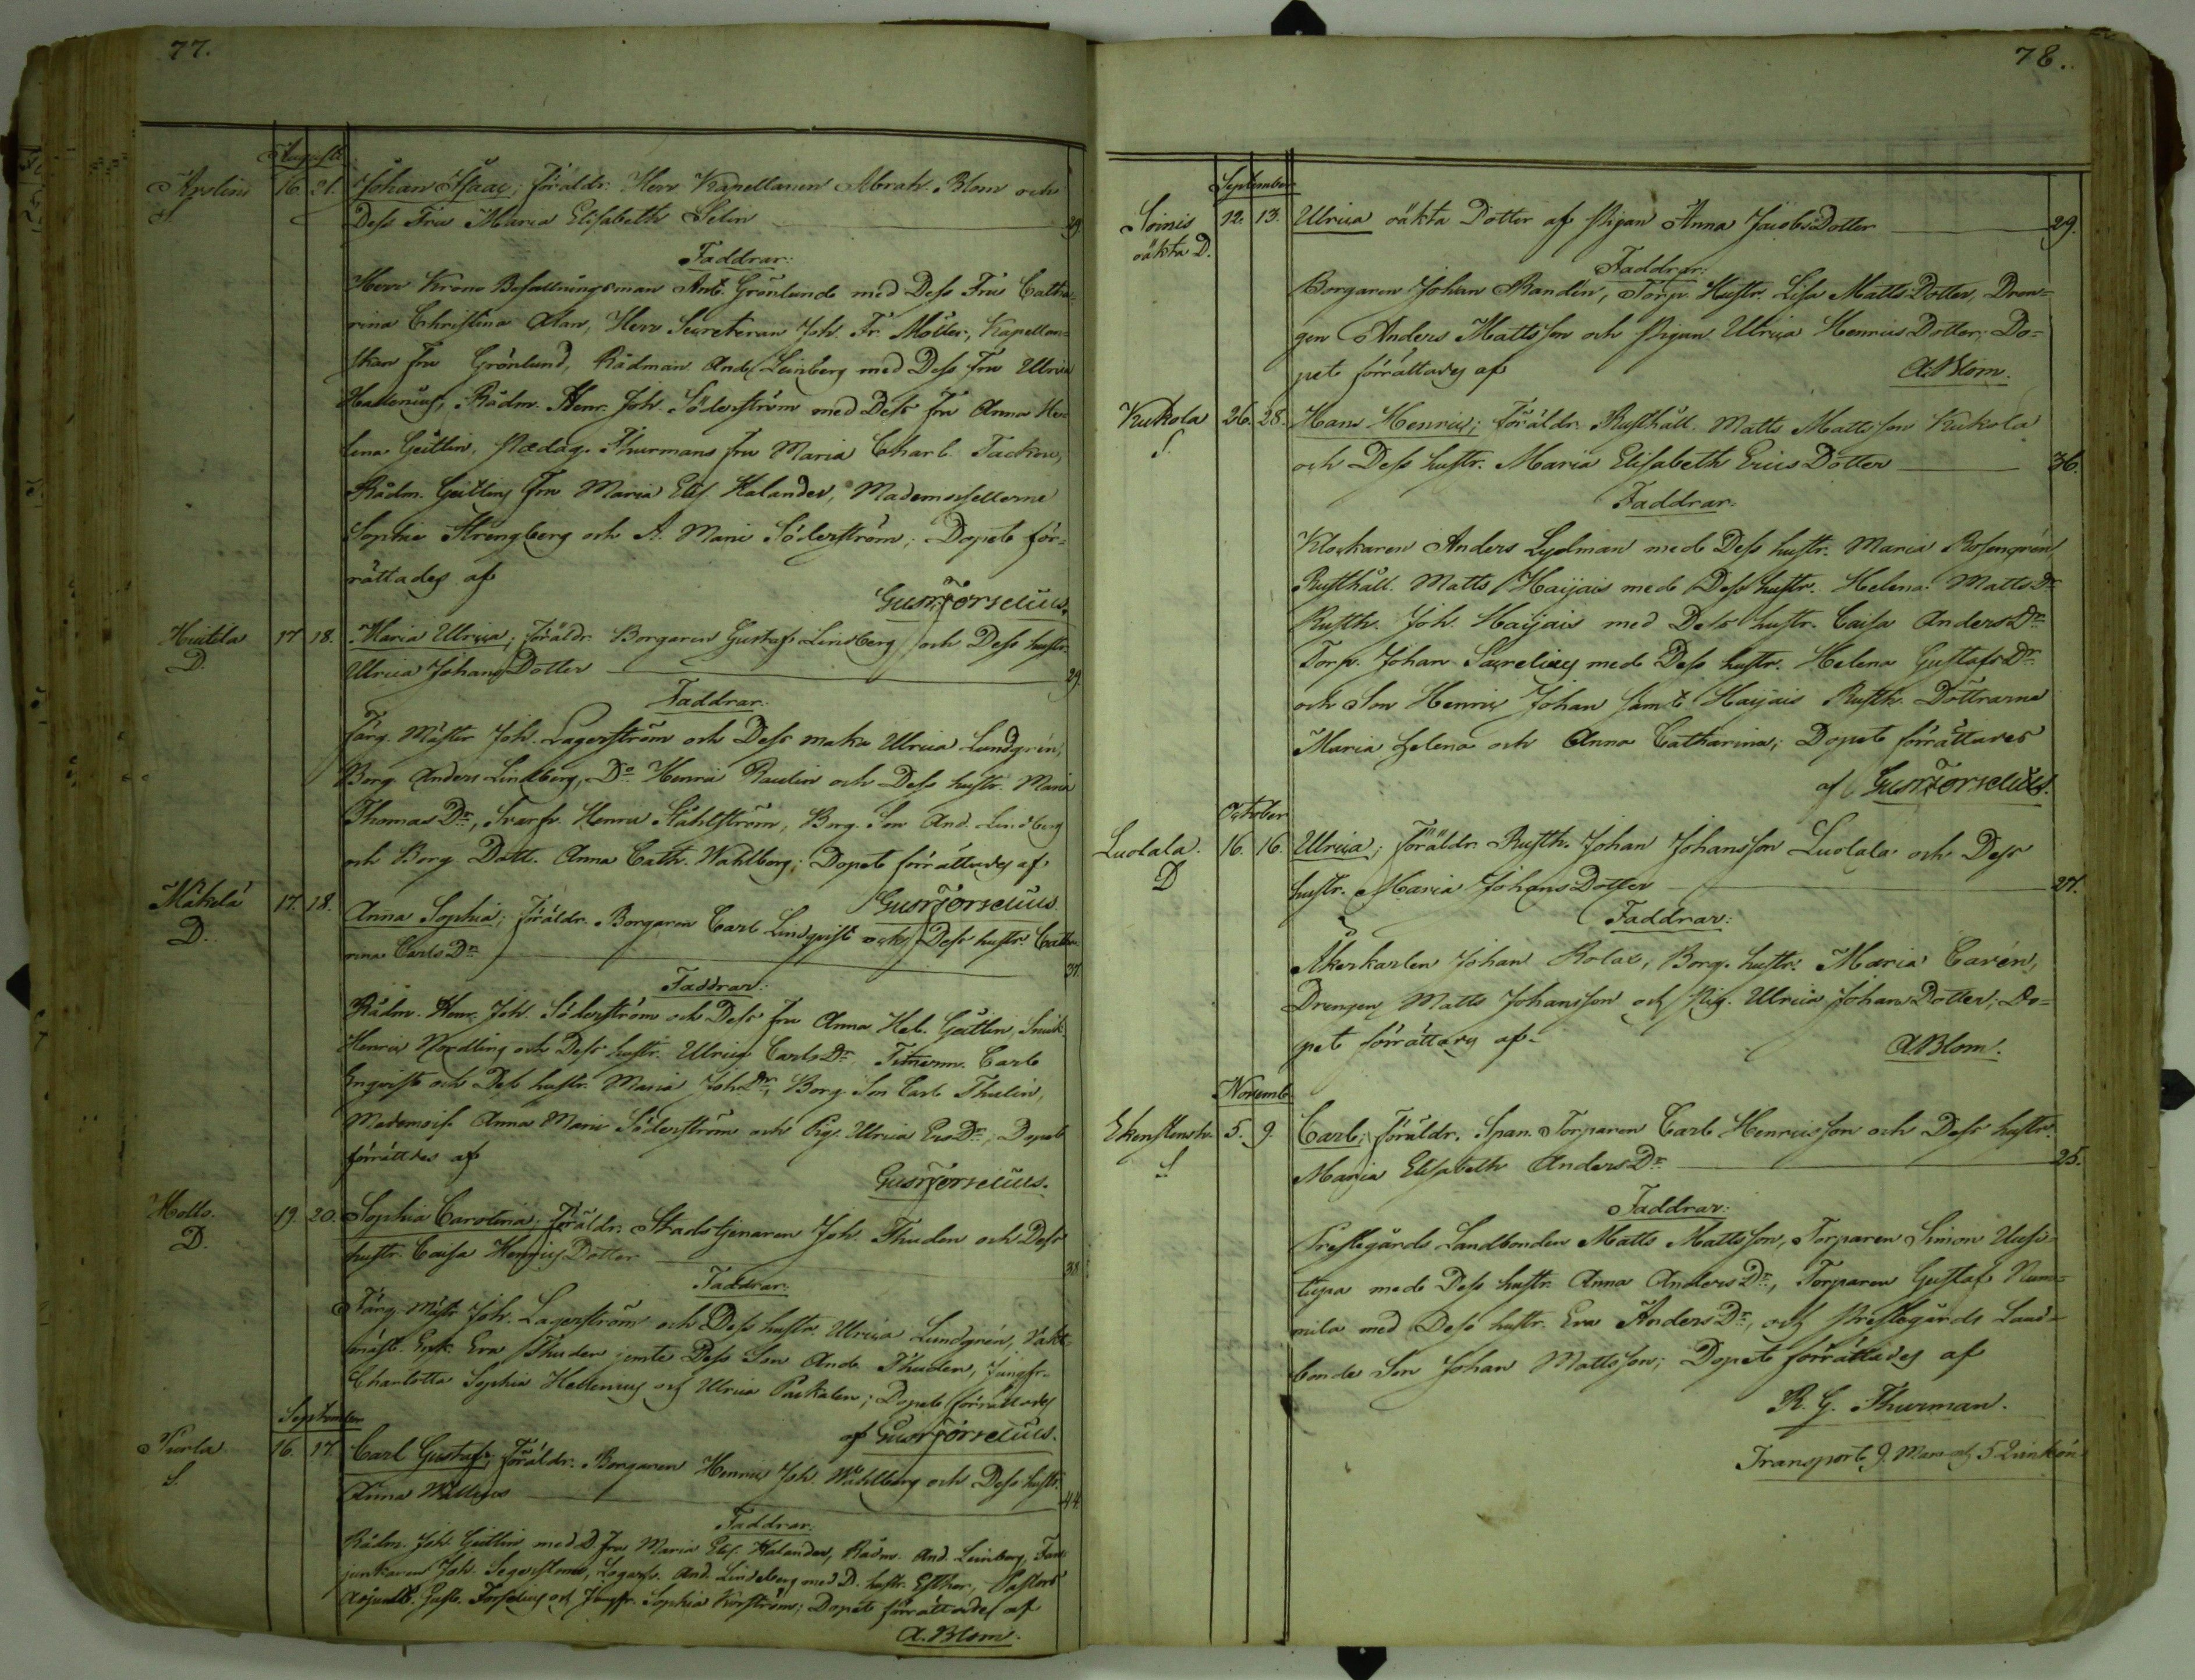 77.
Augusti
16. 21. Johan Isaac; föräldr. Herr Kapellanen Abrah. Blom och
S
Dess Fru Maria Elisabeth Selin 29.
Faddrar:
Herr Krono Befallningsman Ant. Grönlund med Dess Fru Catha-
rina Christina Alan, Herr Secreteran Joh. Fr. Möller, Kapellan-
skan Fru Grönlund, Rådman And. Leinberg med Dess Fru Ulrica
Hallenius, Rådm. Henr. Joh. Söderström med Dess Fru Anna He-
lena Geitlin, Pædag. Thurmans Fru Maria Charl. Tackou,
Rådm. Geitlins Fru Maria Elis. Kalander, Mademoisellerne
Sophie Strengberg och A. Marie Söderström; Dopet för-
rättades af
Gust. Forselius.
Huitila 17 18. Maria Ulrica; föräldr. Borgaren Gustaf Lindberg och Dess hustr.
D.
Ulrica Johans Dotter 29.
Faddrar:
Färg. Mäster Joh. Lagerström och Dess maka Ulrica Lundgrén,
Borg. Anders Lindberg, Do Henric Paulin och Dess hustr. Maria
Thomas Dr, Svarfv. Henric Ståhlström, Borg. Son And. Lindberg
och Borg. Dott. Anna Cath. Wahlberg; Dopet förrättades af
Gust Forselius.
Mäkelä 17. 18. Anna Sophia; föräldr. Borgaren Carl Lindqvist och Dess hustr. Catha-
D.
rina Carls Dr 37.
Faddrar:
Rådm. Henr. Joh. Söderström och Dess fru Anna Hel. Geitlin, Smed.
Henric Nordling och Dess hustr. Ulrica Carls Dr Timerm. Carl
Enqvist och Dess hustr. Maria Joh. Dr, Borg. Son Carl Thulin,
Mademois. Anna Marie Söderström och Pig. Ulrica Ers Dr; Dopet
förrättades af
Gust Forselius.
Hollo. 19. 20. Sophia Carolina; föräldr. Stadstjenaren Joh. Thuden och Dess
D.
hustr. Caisa Henrics Dotter 38
Faddrar:
Färg. Mästr. Joh. Lagerström och Dess hustr. Ulrica Lundgrén, Vakt-
mäst. Enk. Eva Thuden jemte Dess Son And. Thuden, Jungfr.
Charlotta Sophia Hellenius och Ulrica Packalen; Dopet förrättades
af Gust Forselius.
September
16. 17. Carl Gustaf; föräldr. Borgaren Henric Joh. Wahlberg och Dess hustr.
S.
Anna Wallenius 44.
Faddrar:
Rådm. Joh. Geitlin med D. fru Maria Elis. Kalander, Rådm. And. Leinberg, Fan-
junkaren Joh. Segerstrom, Logarfv. And. Lindeberg med D. hustr. Esther, Pastors
Adjunkt. Gust. Forselius och Jungfr. Sophia Korström; Dopet förrättades af
A. Blom.
78.
September
Soinis 12. 13. Ulrica oäkta Dotter af Pigan Anna Jacobs Dotter 29.
oäkta D.
Faddrar:
Borgaren Johan Randén, Torp. Hustr. Lisa Matts Dotter, Dren-
gen Anders Mattsson och Pigan Ulrica Henrics Dotter; Do-
pet förrättades af A. Blom.
Kukola 26. 28. Hans Henric; föräldr. Rusthåll. Matts Mattsson Kukola
S.
och Dess hustr. Maria Elisabeth Erics Dotter 36.
Faddrar:
Klockaren Anders Lydman med Dess hustr. Maria Rosengrén,
Rusthåll. Matts Haijais med Dess hustr. Helena Matts Dr
Rusth. Joh. Haijais med Dess hustr. Caisa Anders Dr
Torp. Johan Savelius med Dess hustr. Helena Gustafs Dr
och Son Henric Johan samt Haijais Rusth. Döttrarna
Maria Helena och Anna Catharina; Dopet förrättades
af Gust Forselius.
October
Luolala. 16. 16. Ulrica; föräldr. Rusth. Johan Johansson Luolala och Dess
D
hustr. Maria Johans Dotter 27.
Faddrar:
Åkerkarlen Johan Kolax, Borg. hustr. Maria Carén,
Drengen Matts Johansson och Pig. Ulrica Johans Dotter; Do-
pet förrättades af A Blom.
Novemb.
5. 9. Carl; föräldr. Span. Torparen Carl Henricsson och Dess hustr.
S
Maria Elisabeth Anders Dr 25.
Faddrar:
Prestegårds Landbonden Matts Mattsson, Torparen Simon Uusi-
tupa med Dess hustr. Anna Anders Dr, Torparen Gustaf Num-
mila med Dess hustr. Eva Anders Dr, och Prestegårds Land-
bonde Son Johan Mattsson; Dopet förrättades af
R. G. Thurman.
Transport 9. Man- och 5 Qvinkön.